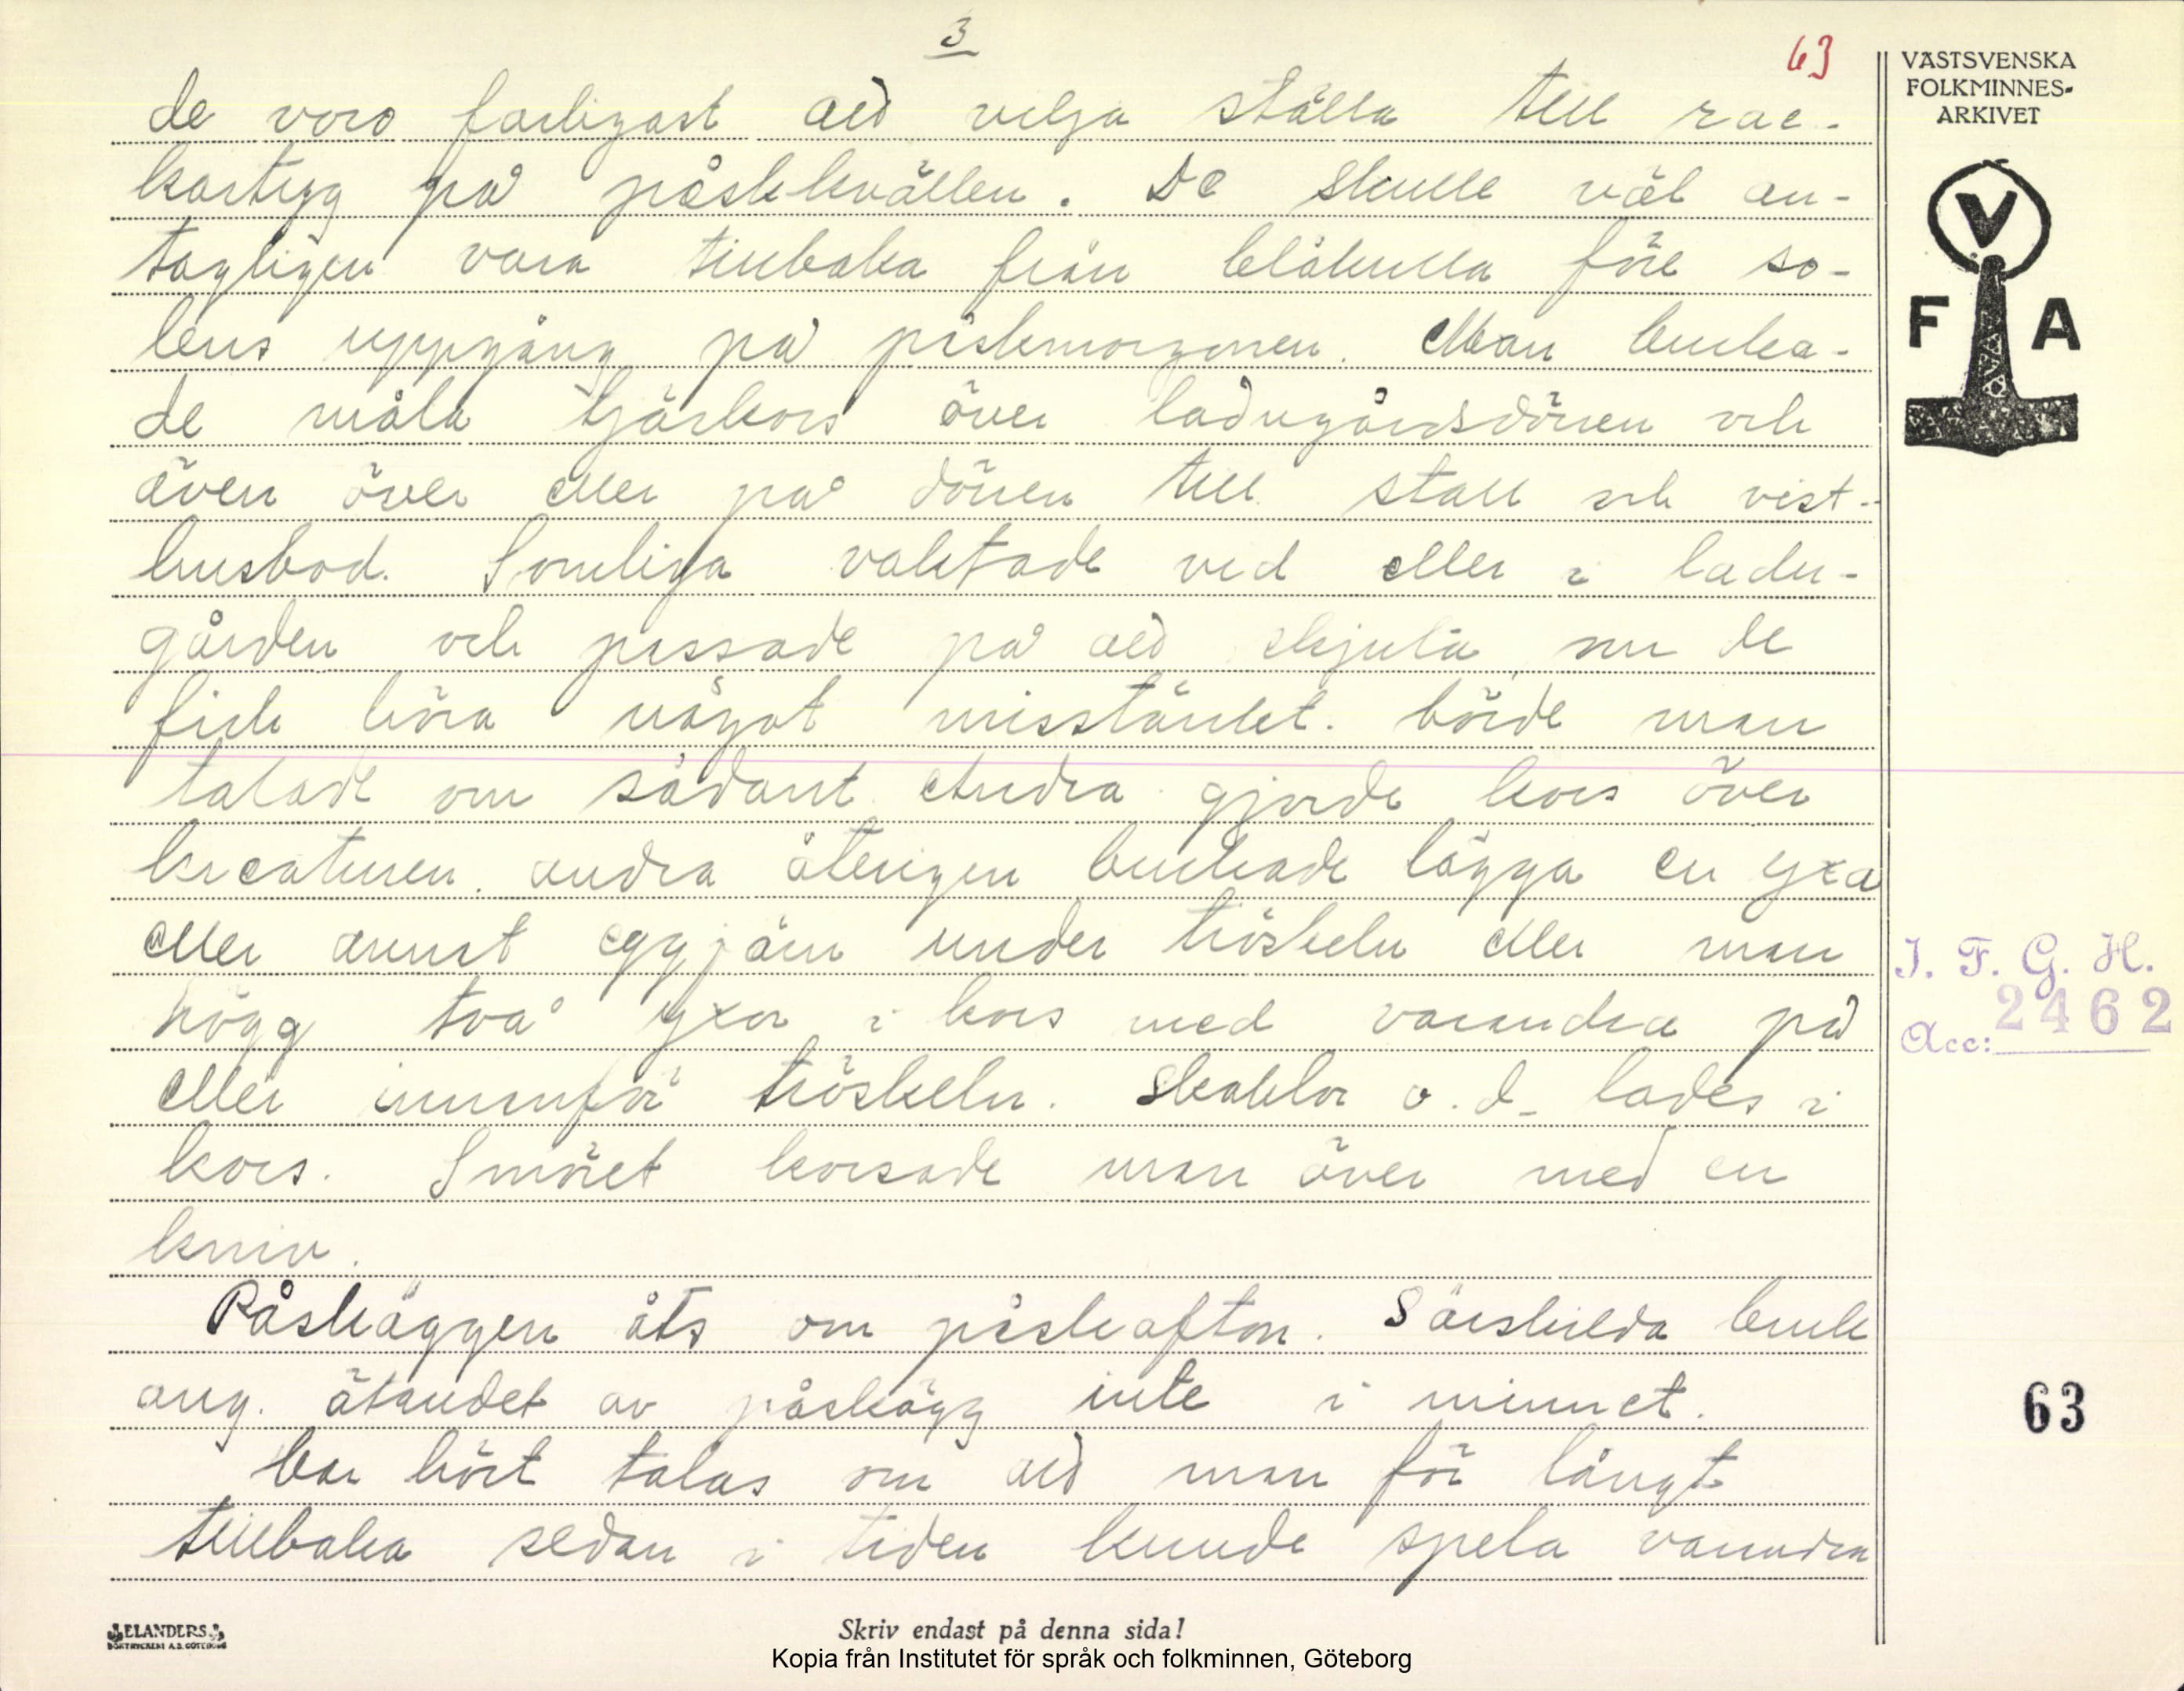 3
63
de voro farligast att velja ställa till rac-
kartyg på påskkvällen. De skulle väl an-
tagligen vara tillbaka från blåkulla före so-
lens uppgång på påskmorgonen. Man bruka-
de måla tjärkors över ladugårdsdörren och
även över eller på dörren till stall och vist-
husbod. Somliga vaktade ved eller i ladu-
gården och passade på att skjuta, om de
fick höra något misstänkt. hörde man
talade om sådant. Andra gjorde kors över
kreaturen. andra återigen brukade lägga en yxa
eller annat eggjärn under tröskeln eller man
högg två yxor i kors med varandra på
eller innanför tröskeln. Skaklor o.d. lades i
kors. Smöret korsade man över med en
kniv.
Påskäggen åts om påskafton. Särskilda bruk
ang. ätandet av påskägg inte i minnet.
har hört talas om att man för långt
tillbaka sedan i tiden kunde spela varandra
VÄSTSVENSKA
FOLKMINNES-
ARKIVET
V
F A
I. F. G. H.
Acc: 2462
63
ELANDERS
BOKTRYCKERI A.B. GÖTEBORG
Skriv endast på denna sida!
Kopia från Institutet för språk och folkminnen, Göteborg